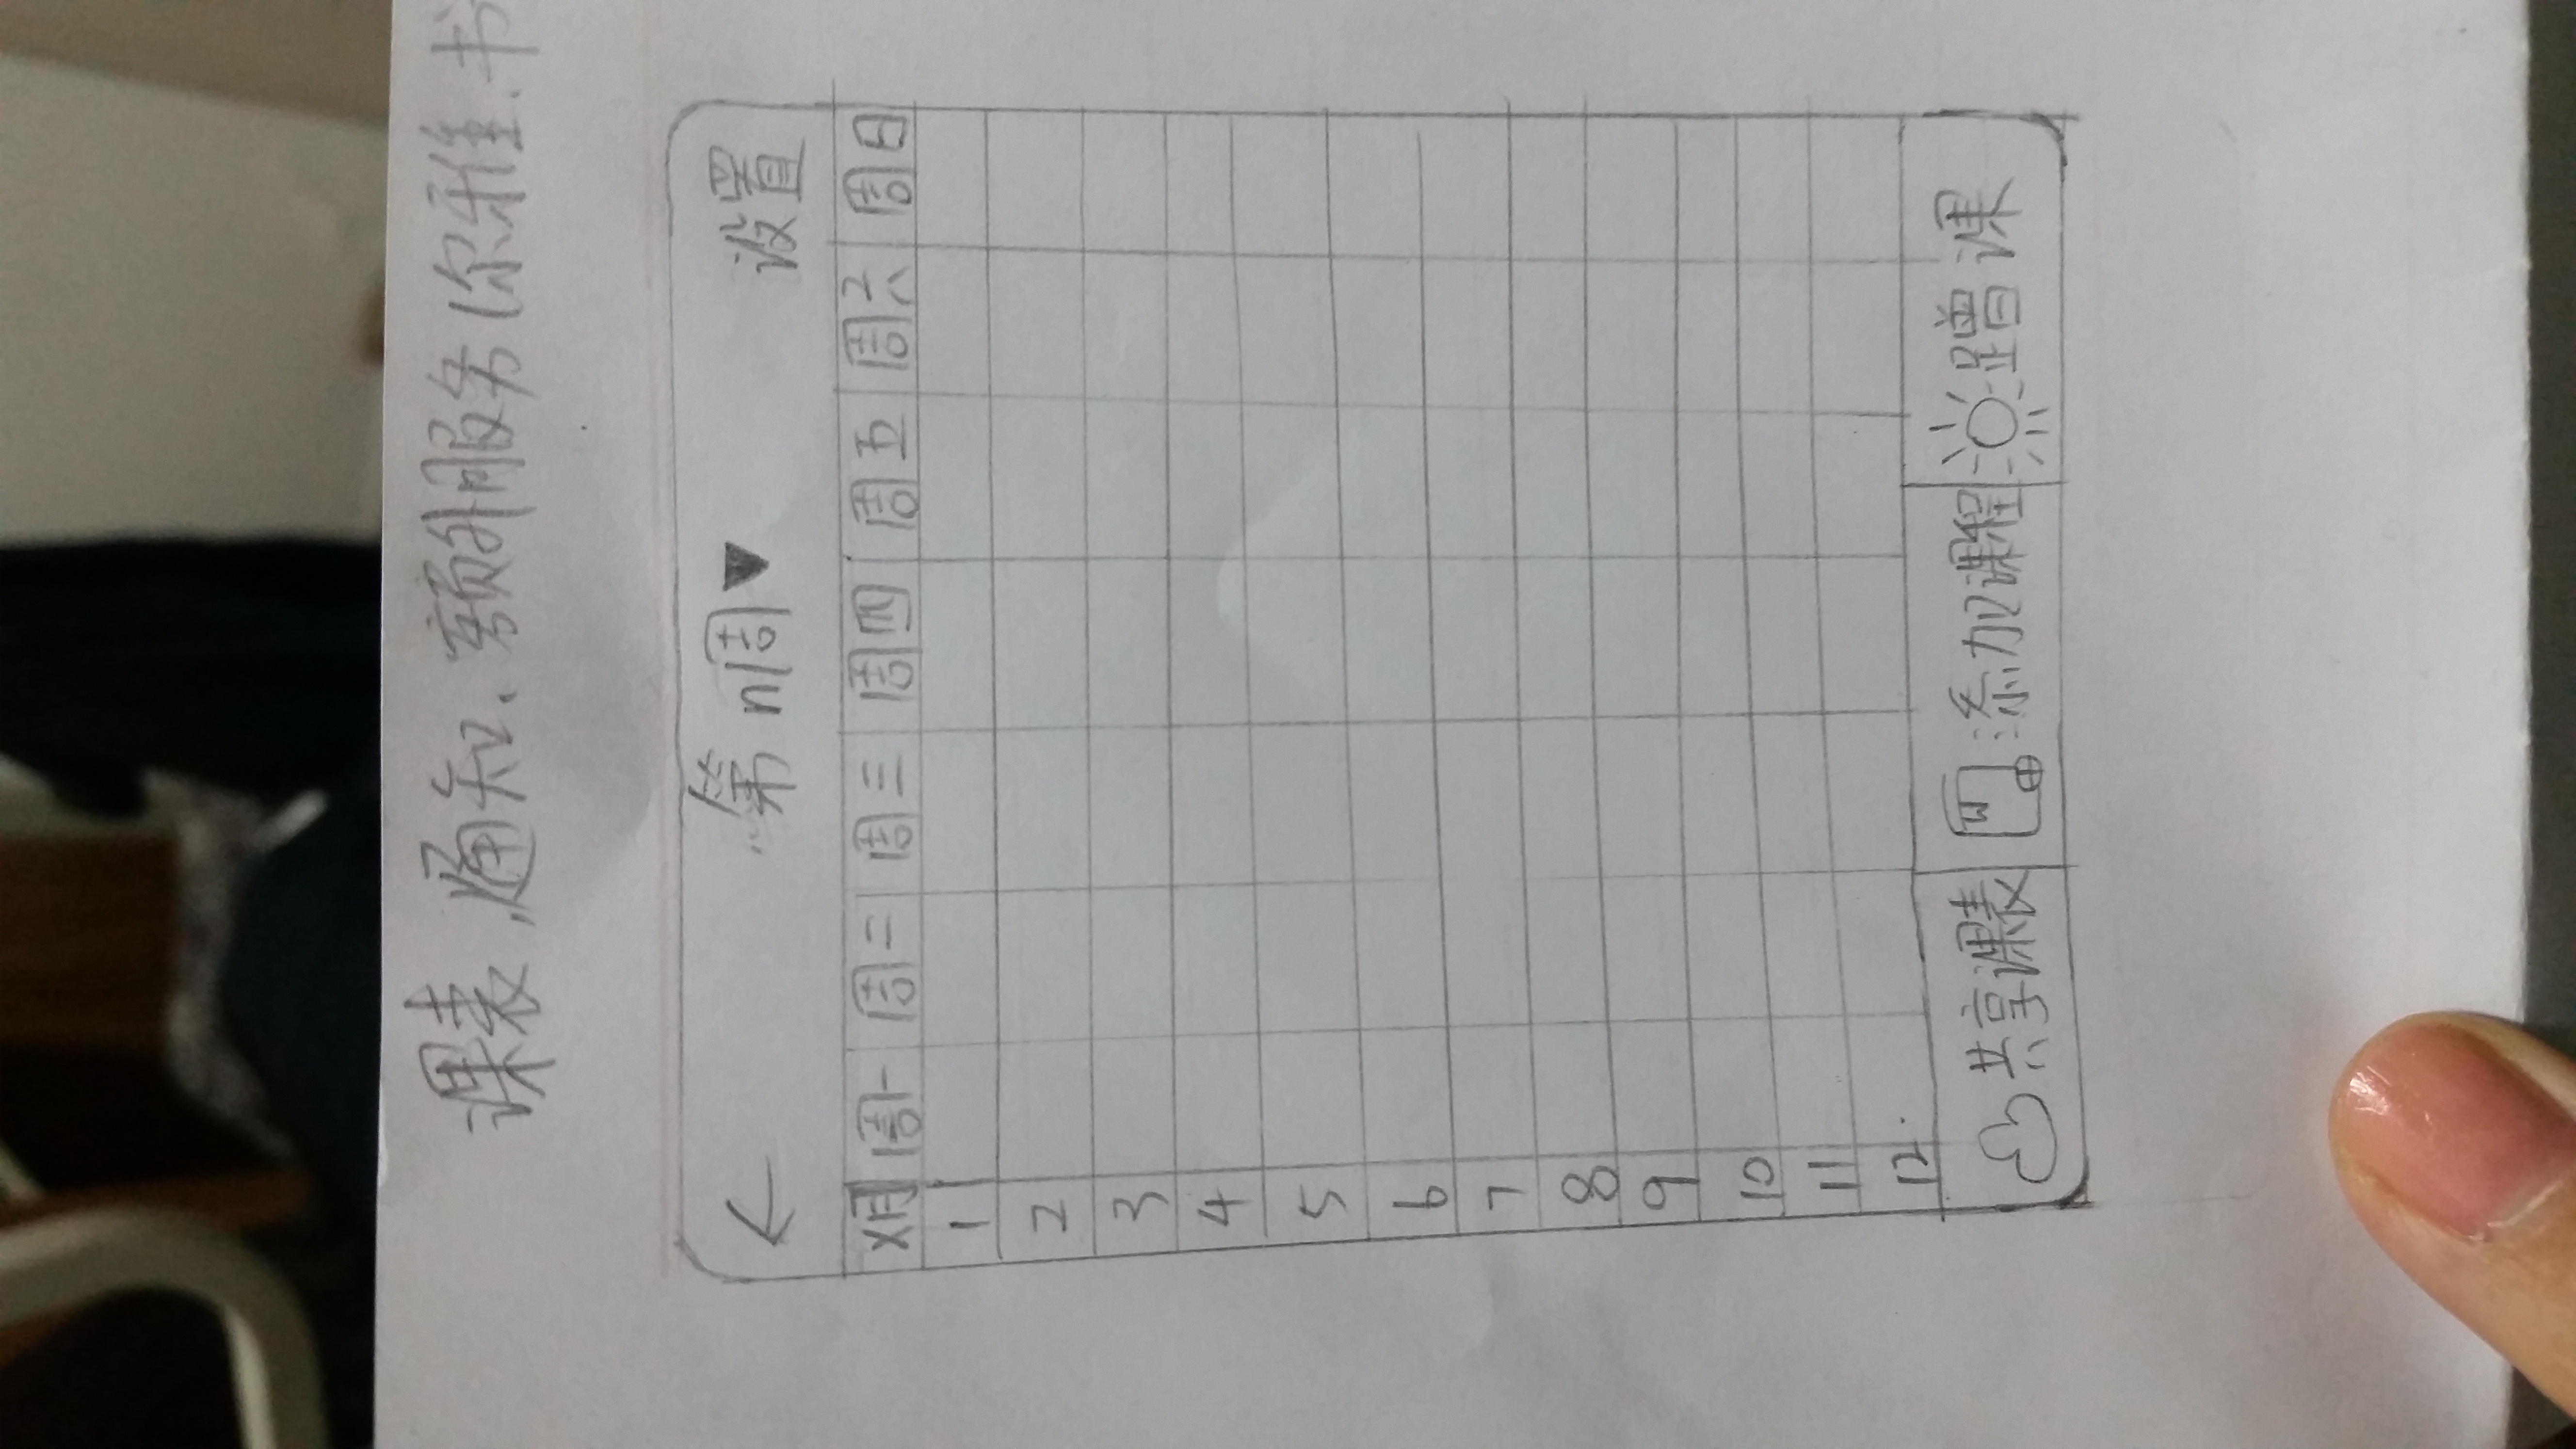 课表、通知、额外服务（尔雅、书
← 第n周▼ 设置
X月 周一 周二 周三 周四 周五 周六 周日
1
2
3
4
5
6
7
8
9
10
11
12
共享课表 添加课程 蹭课